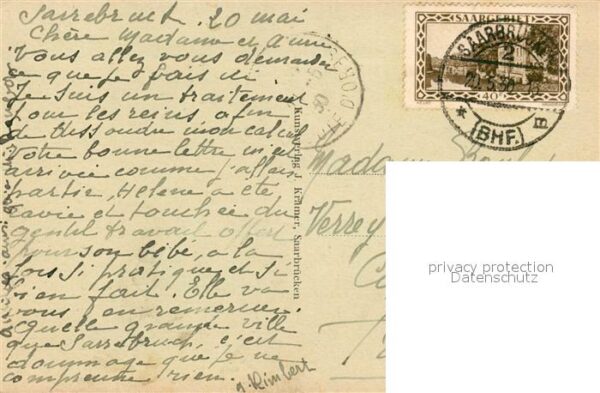 Sarrebruck, 20 mai
Chère Madame et Amie
Vous allez vous demander
ce que je fais ici
Je suis un traitement
pour les reins afin
de dissoudre mon calcul
Votre bonne lettre m'est
arrivée comme j'allais
partir, Hélène a été
ravie et touchée du
gentil travail offert
pour son bébé, à la
fois si pratique et si
bien fait. Elle va
vous en remercier.
Quelle grande ville
que Sarrebruck, c'est
dommage que je ne
comprenne rien.
J. Rimbert
Kunstverlag J. Krämer, Saarbrücken
SAARGEBIET
40
SAARBRÜCKEN
2
(BHF.)
* B
Madame
Verrey
privacy protection
Datenschutz